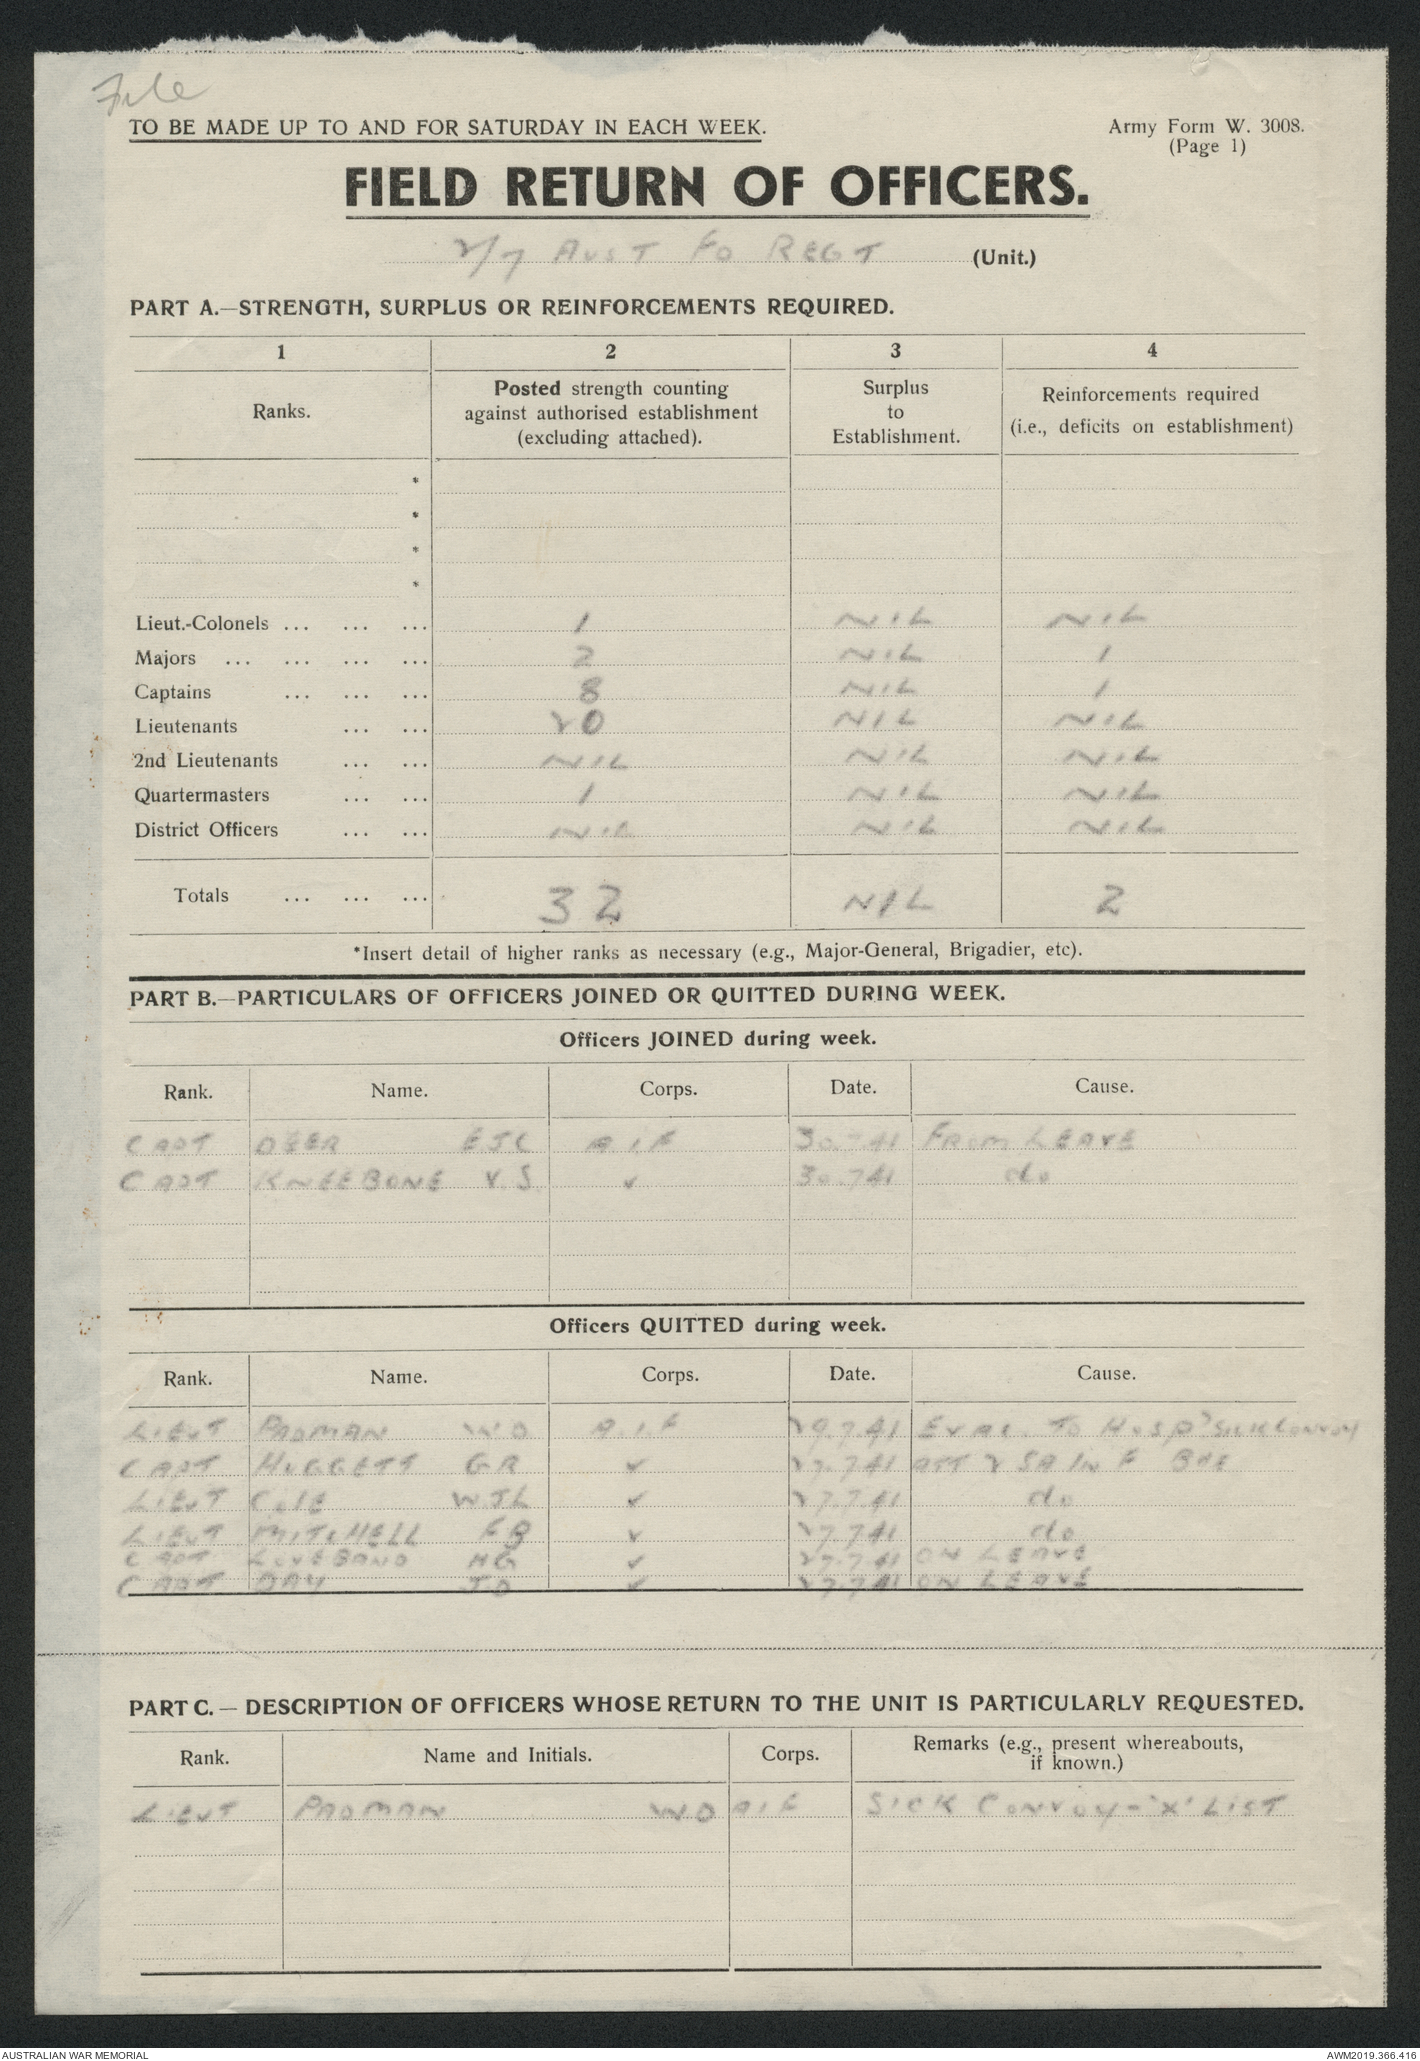 File
TO BE MADE UP TO AND FOR SATURDAY IN EACH WEEK.
Army Form W. 3008.
(Page 1)
FIELD RETURN OF OFFICERS.
2/7 AUST FD REGT (Unit.)
PART A.—STRENGTH, SURPLUS OR REINFORCEMENTS REQUIRED.
1 2 3 4
Ranks. Posted strength counting against authorised establishment (excluding attached). Surplus to Establishment. Reinforcements required (i.e., deficits on establishment)
*
*
*
*
Lieut.-Colonels ... ... ... 1 NIL NIL
Majors ... ... ... ... 2 NIL 1
Captains ... ... ... 8 NIL 1
Lieutenants ... ... 20 NIL NIL
2nd Lieutenants ... ... NIL NIL NIL
Quartermasters ... ... 1 NIL NIL
District Officers ... ... NIL NIL NIL
Totals ... ... ... 32 NIL 2
*Insert detail of higher ranks as necessary (e.g., Major-General, Brigadier, etc).
PART B.—PARTICULARS OF OFFICERS JOINED OR QUITTED DURING WEEK.
Officers JOINED during week.
Rank. Name. Corps. Date. Cause.
CAPT DEER EJC A.I.F 30.7.41 FROM LEAVE
CAPT KNEEBONE V.S. ✓ 30.7.41 do
Officers QUITTED during week.
Rank. Name. Corps. Date. Cause.
LIEUT PADMAN WD A.I.F 29.7.41 EVAC. TO HOSP SICK CONVOY
CAPT HUGGETT GR ✓ 27.7.41 ATT 2 SA INF BDE
LIEUT COLE WJL ✓ 27.7.41 do
LIEUT MITCHELL FB ✓ 27.7.41 do
CAPT LOVEBAND HG ✓ 27.7.41 ON LEAVE
CAPT DAY JD ✓ 27.7.41 ON LEAVE
PART C. — DESCRIPTION OF OFFICERS WHOSE RETURN TO THE UNIT IS PARTICULARLY REQUESTED.
Rank. Name and Initials. Corps. Remarks (e.g., present whereabouts, if known.)
LIEUT PADMAN WD AIF SICK CONVOY - 'X' LIST
AUSTRALIAN WAR MEMORIAL
AWM2019.366.416